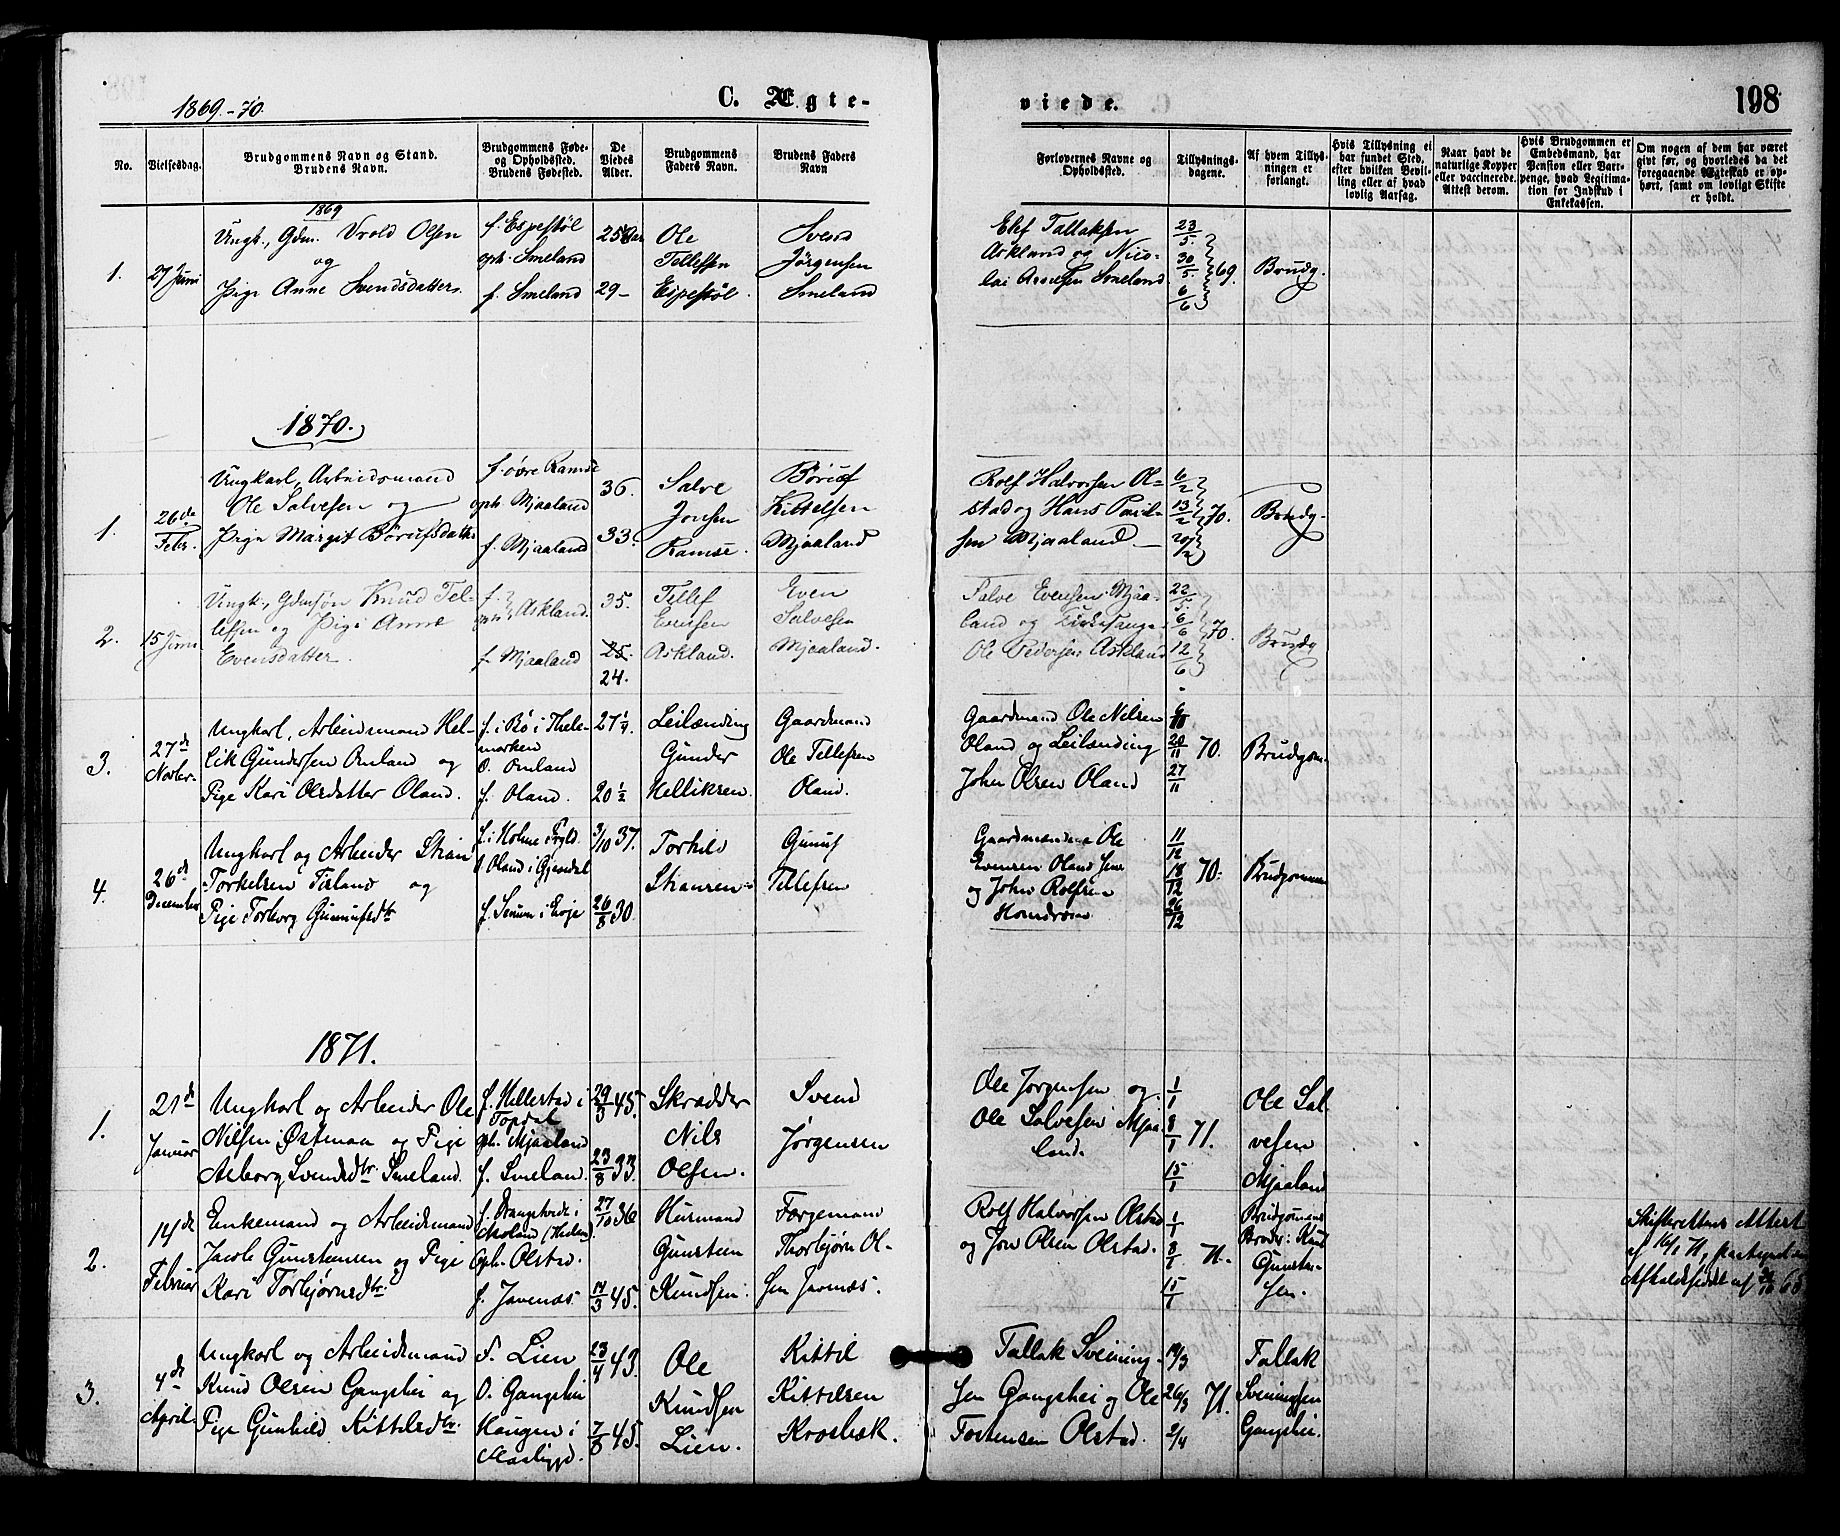 1869.-70.
C. Ægte-
viede.
198
No.
Vielsesdag.
Brudgommens Navn og Stand.
Brudens Navn.
Brudgommens Føde-
og Opholdssted.
Brudens Fødested.
De
Viedes
Alder.
Brudgommens
Faders Navn.
Brudens Faders
Navn
Forlovernes Navne og
Opholdssted.
Tillysnings-
dagene.
Af hvem Tillys-
ningen er
forlangt.
Hvis Tillysning ei
har fundet Sted,
efter hvilken Bevil-
ling eller af hvad
lovlig Aarsag.
Naar havt de
naturlige Kopper
eller vaccinerede.
Attest derom.
Hvis Brudgommen er
Embedsmand, har
Pension eller Vart-
penge, hvad Legitima-
tion for Indskud i
Enkekassen.
Om nogen af dem har været
givt før, og hvorledes da det
foregaaende Ægteskab er op-
hørt, samt om lovligt Skifte
er holdt.
1869
1.
27 Juni
Ungk., Gdm. Vrold Olsen
og
Pige Anne Svendsdatter.
f. Espestøl
oph. Smeland
f. Smeland
25
29-
Ole
Tellefsen
Espestøl.
Svend
Jörgensen
Smeland
Elef Tallaksen
Askland og Nico-
lai Asselsen Smeland
23/5.
30/5.
6/6
69.
Brudg.
1870.
1.
26de
Febr.
Ungkarl, Arbeidsmand
Ole Salvesen og
Pige Margit Börufsdatter
f. övre Ramse
oph. Mjaaland
f. Mjaaland
36.
33.
Salve
Jonsen
Ramse.
Böruf
Kittelsen
Mjaaland
Rolf Halvorsen Ol-
stad og Hans
sen Mjaaland
6/2
13/2
20/2
70.
Brudg.
2.
15 Juni
Ungk., Gdmsøn Knud Tel-
lefsen og Pige Anne
Evensdatter.
f. og
oph. Askland.
f. Mjaaland
35.
25.
24.
Tellef
Evensen
Askland.
Even
Salvesen
Mjaaland.
Salve Evensen Mjaa-
land og Kirkesanger
Ole Pedersen Askland
22/5.
6/6
12/6
70.
Brudg
3.
27de
Novbr.
Ungkarl, Arbeidsmand Hel-
lik Gundersen Omland og
Pige Kari Olsdatter Oland.
f. i Bö i Thele-
marken
O. Omland
f. Oland.
27 1/4.
20 1/2
Leilænding
Gunder
Helliksen
Gaardmand
Ole Tellefsen
Oland.
Gaardmand Ole Nilsen
Oland og Leilænding
John Olsen Oland
6/10
20/11
27/11
70.
Brudgom.
4.
26de
December
Ungkarl og Arbeider Stian
Torkelsen Tisland og
Pige Torborg Gunufsdtr
f. i Holme
O. Oland i Gjövdal
f. Senum i Evje
3/10 37.
26/8 30.
Torkild
Stiansen
Gunuf
Tellefsen
Gaardmændene Ole
Evensen Oland
og John Rolfsen
Homdrom
11/12
18/12
26/12
70.
Brudgommen
1871.
1.
21de
Januar
Ungkarl og Arbeider Ole
Nilsen Østmaa og Pige
Asborg Svendsdtr Smeland.
f. Hillestad i
Topdal
oph. Mjaaland
f. Smeland.
29/8 45.
23/8 33.
Skrædder
Nils
Olsen.
Svend
Jørgensen
Ole Jørgensen og
Ole Salvesen Mjaa-
land.
1/1
8/1
15/1
71.
Ole Sal-
vesen
Mjaaland
2.
14de
Februar
Enkemand og Arbeidsmand
Jacob Gunsteinsen og Pige
Kari Torbjørnsdtr
oph. Olstad.
f. Javenæs.
27/10 36
14/3 45.
Husmand
Gunsteen
Knudsen.
Torbjørn Ol-
sen Javnæs.
Rolf Halvorsen Olstad
og Jon Olsen Olstad.
1/1
8/1
15/1
71.
Brudgomens
Broder: Knud
Gunstei-
sen.
Skifterettens Attest
af 16/1 71,
3.
4de
April.
Ungkarl og Arbeidsmand
Knud Olsen Gangshei og
Pige Gunhild Kittilsdtr.
F. Lien
O. Gangshei
Haugen i
23/4 43.
7/8 45.
Ole
Knudsen
Lien.
Kittil
Kittilsen
Krosbæk.
Tallak Svenning-
sen Gangshei og Ole
Torstensen Olstad.
19/3
26/3
2/4
71.
Tallak
Svenningsen
Gangshei.